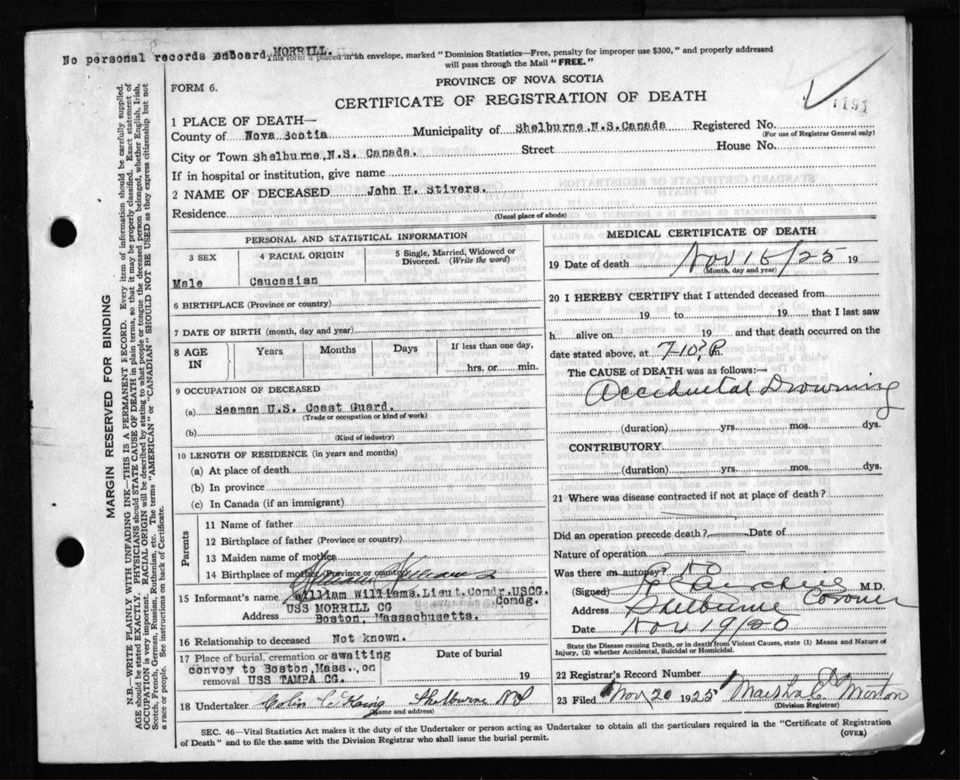 No personal records onboard MORRILL.
This form if placed in an envelope, marked "Dominion Statistics—Free, penalty for improper use $300," and properly addressed
will pass through the Mail "FREE."
PROVINCE OF NOVA SCOTIA
FORM 6.
CERTIFICATE OF REGISTRATION OF DEATH
1191
1 PLACE OF DEATH—
County of Nova Scotia Municipality of Shelburne,N.S.Canada Registered No.
(For use of Registrar General only)
City or Town Shelburne,N.S. Canada. Street House No.
If in hospital or institution, give name
2 NAME OF DECEASED John H. Stivers.
Residence
(Usual place of abode)
PERSONAL AND STATISTICAL INFORMATION
3 SEX 4 RACIAL ORIGIN 5 Single, Married, Widowed or
Divorced. (Write the word)
Male Caucasian
6 BIRTHPLACE (Province or country)
7 DATE OF BIRTH (month, day and year)
8 AGE IN Years Months Days If less than one day,
hrs. or min.
9 OCCUPATION OF DECEASED
(a) Seaman U.S. Coast Guard.
(Trade or occupation or kind of work)
(b)
(Kind of industry)
10 LENGTH OF RESIDENCE (in years and months)
(a) At place of death
(b) In province
(c) In Canada (if an immigrant)
Parents
11 Name of father
12 Birthplace of father (Province or country)
13 Maiden name of mother
14 Birthplace of mother (Province or country)
William Williams
15 Informant's name William Williams, Lieut. Comdr. USCG.
Comdg.
Address USS MORRILL CG
Boston, Massachusetts.
16 Relationship to deceased Not known.
17 Place of burial, cremation or awaiting Date of burial
convoy to Boston,Mass., on
removal USS TAMPA CG. 19
18 Undertaker Colin C. Shelburne NS
(Name and address)
MEDICAL CERTIFICATE OF DEATH
19 Date of death Nov 16/25 19
(Month, day and year)
20 I HEREBY CERTIFY that I attended deceased from
19 to 19 that I last saw
h alive on 19 and that death occurred on the
date stated above, at 7-10? P m.
The CAUSE of DEATH was as follows:—
Accidental Drowning
(duration) yrs. mos. dys.
CONTRIBUTORY
(duration) yrs. mos. dys.
21 Where was disease contracted if not at place of death?
Did an operation precede death? Date of
Nature of operation
Was there an autopsy? NO
(Signed) M.D.
Coroner
Address Shelburne
Date Nov 19/25
State the Disease causing Death, or in death from Violent Causes, state (1) Means and Nature of
Injury, (2) whether Accidental, Suicidal or Homicidal.
22 Registrar's Record Number
23 Filed Nov 20 1925 Marshal
(Division Registrar)
SEC. 46—Vital Statistics Act makes it the duty of the Undertaker or person acting as Undertaker to obtain all the particulars required in the "Certificate of Registration
of Death" and to file the same with the Division Registrar who shall issue the burial permit.
(OVER)
MARGIN RESERVED FOR BINDING
N.B.—WRITE PLAINLY WITH UNFADING INK—THIS IS A PERMANENT RECORD. Every item of information should be carefully supplied.
AGE should be stated EXACTLY. PHYSICIANS should STATE CAUSE OF DEATH in plain terms, so that it may be properly classified. Exact statement of
OCCUPATION is very important. RACIAL ORIGIN will be described by stating to what people or tongue the deceased person belonged, whether English, Irish,
Scotch, French, German, Russian, Ruthenian, etc. The terms "AMERICAN" or "CANADIAN" SHOULD NOT BE USED as they express citizenship but not
a race or people. See instructions on back of Certificate.